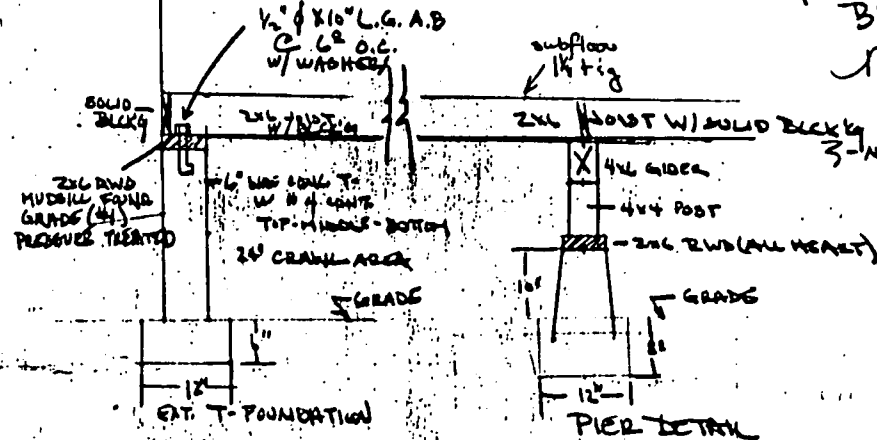 1/2" ∅ X10" L.G. A.B
@ 6⁰ O.C.
W/ WASHER
subfloor
1⅛ t&g
SOLID
BLCKG
2X6 JOIST
W/ BLCKG
2X6 JOIST W/ SOLID BLCKG
2X6 RWD
MUDSILL FOUND
GRADE (#1)
PRESSUER TREATED
6" CONC T-
W # 4 CONT
TOP-MIDDLE-BOTTOM
24" CRAWL AREA
4X6 GIDER
4X4 POST
2X6 RWD (ALL HEART)
GRADE
GRADE
12"
EXT. T-FOUNDATION
12"
PIER DETAIL